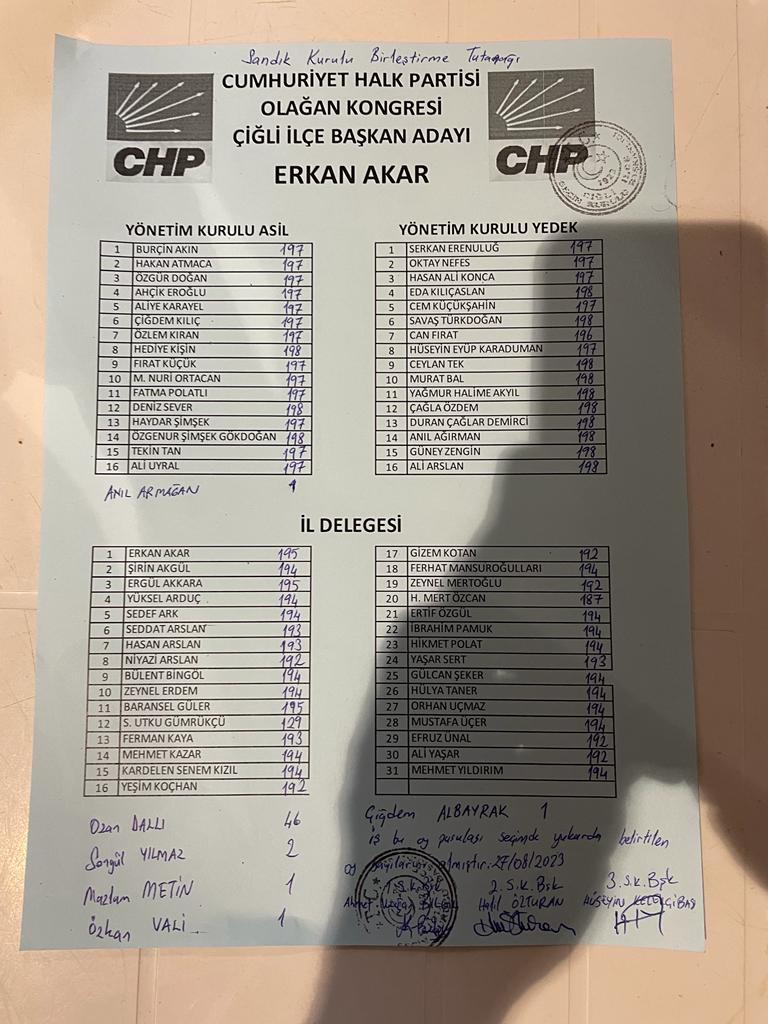 Sandık Kurulu Birleştirme Tutanağı
CUMHURİYET HALK PARTİSİ
OLAĞAN KONGRESİ
ÇİĞLİ İLÇE BAŞKAN ADAYI
ERKAN AKAR
CHP
CHP
YÖNETİM KURULU ASİL
1 BURÇİN AKIN 197
2 HAKAN ATMACA 197
3 ÖZGÜR DOĞAN 197
4 AHÇİK EROĞLU 197
5 ALİYE KARAYEL 197
6 ÇİĞDEM KILIÇ 197
7 ÖZLEM KIRAN 197
8 HEDİYE KİŞİN 198
9 FIRAT KÜÇÜK 197
10 M. NURİ ORTACAN 197
11 FATMA POLATLI 197
12 DENİZ SEVER 198
13 HAYDAR ŞİMŞEK 197
14 ÖZGENUR ŞİMŞEK GÖKDOĞAN 198
15 TEKİN TAN 197
16 ALİ UYRAL 197
ANIL ARMAĞAN 1
YÖNETİM KURULU YEDEK
1 SERKAN ERENULUĞ 197
2 OKTAY NEFES 197
3 HASAN ALİ KONCA 197
4 EDA KILIÇASLAN 198
5 CEM KÜÇÜKŞAHİN 197
6 SAVAŞ TÜRKDOĞAN 198
7 CAN FIRAT 196
8 HÜSEYİN EYÜP KARADUMAN 197
9 CEYLAN TEK 198
10 MURAT BAL 198
11 YAĞMUR HALİME AKYIL 198
12 ÇAĞLA ÖZDEM 198
13 DURAN ÇAĞLAR DEMİRCİ 198
14 ANIL AĞIRMAN 198
15 GÜNEY ZENGİN 198
16 ALİ ARSLAN 198
İL DELEGESİ
1 ERKAN AKAR 195
2 ŞİRİN AKGÜL 194
3 ERGÜL AKKARA 195
4 YÜKSEL ARDUÇ 194
5 SEDEF ARK 194
6 SEDDAT ARSLAN 193
7 HASAN ARSLAN 193
8 NİYAZİ ARSLAN 192
9 BÜLENT BİNGÖL 194
10 ZEYNEL ERDEM 194
11 BARANSEL GÜLER 195
12 S. UTKU GÜMRÜKÇÜ 129
13 FERMAN KAYA 193
14 MEHMET KAZAR 194
15 KARDELEN SENEM KIZIL 194
16 YEŞİM KOÇHAN 192
17 GİZEM KOTAN 192
18 FERHAT MANSUROĞULLARI 194
19 ZEYNEL MERTOĞLU 192
20 H. MERT ÖZCAN 187
21 ERTİF ÖZGÜL 194
22 İBRAHİM PAMUK 194
23 HİKMET POLAT 194
24 YAŞAR SERT 193
25 GÜLCAN ŞEKER 194
26 HÜLYA TANER 194
27 ORHAN UÇMAZ 194
28 MUSTAFA ÜÇER 194
29 EFRUZ ÜNAL 192
30 ALİ YAŞAR 192
31 MEHMET YILDIRIM 194
Ozan DALLI 46
Songül YILMAZ 2
Mazlum METİN 1
Özkan VALİ 1
Çiğdem ALBAYRAK 1
iş bu oy pusulası seçimde yukarda belirtilen
oy sayılarını almıştır. 27/08/2023
1.S.K.Bşk 2.S.K.Bşk 3.S.K.Bşk
Ahmet Halil ÖZTURAN HÜSEYİN